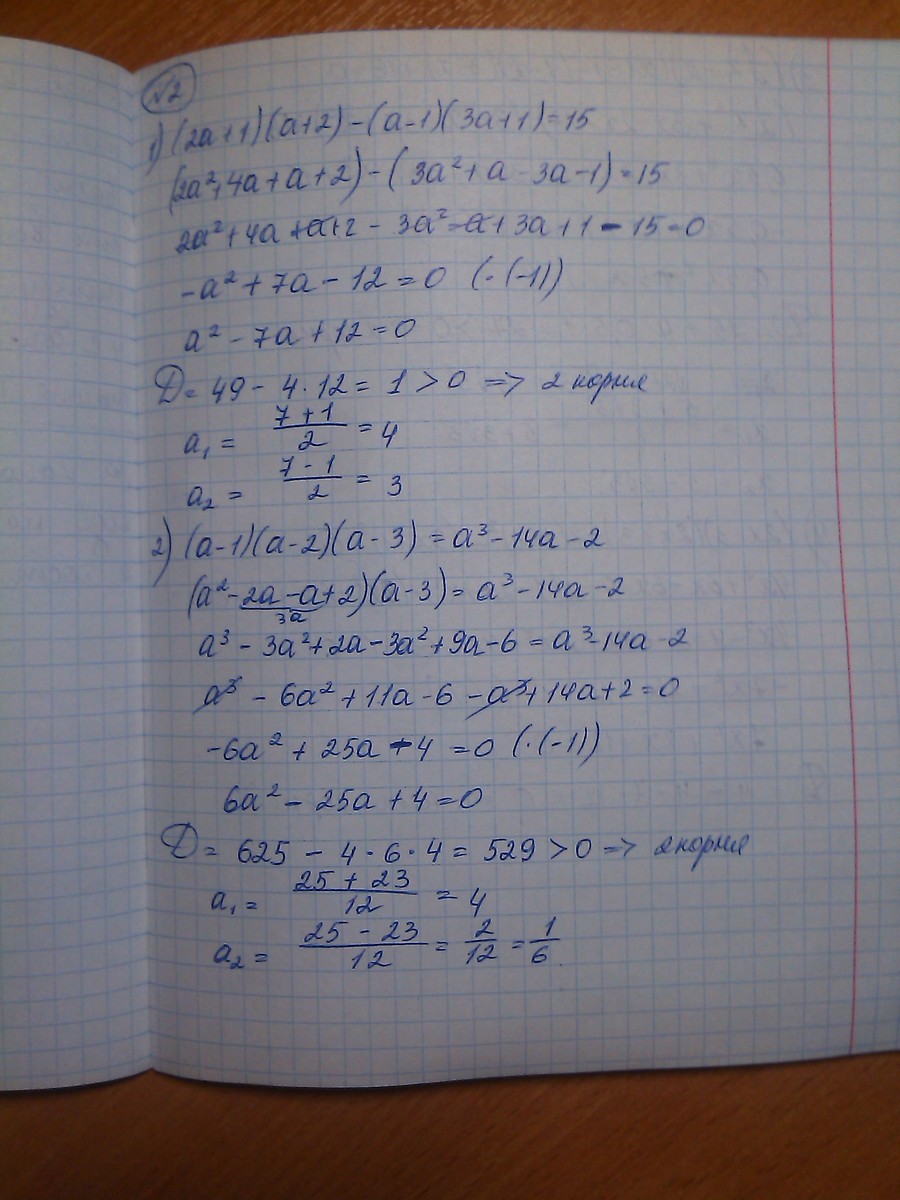 √2
1) (2a+1)(a+2)-(a-1)(3a+1)=15
(2a²+4a+a+2)-(3a²+a-3a-1)=15
2a²+4a+a+2-3a²-a+3a+1-15=0
-a²+7a-12=0 (·(-1))
a²-7a+12=0
D=49-4·12=1>0 => 2 корня
a₁ = (7+1)/2 = 4
a₂ = (7-1)/2 = 3
2) (a-1)(a-2)(a-3)=a³-14a-2
(a²-2a-a+2)(a-3)=a³-14a-2
3a
a³-3a²+2a-3a²+9a-6=a³-14a-2
a³-6a²+11a-6-a³+14a+2=0
-6a²+25a-4=0 (·(-1))
6a²-25a+4=0
D=625-4·6·4=529>0 => 2 корня
a₁ = (25+23)/12 = 4
a₂ = (25-23)/12 = 2/12 = 1/6